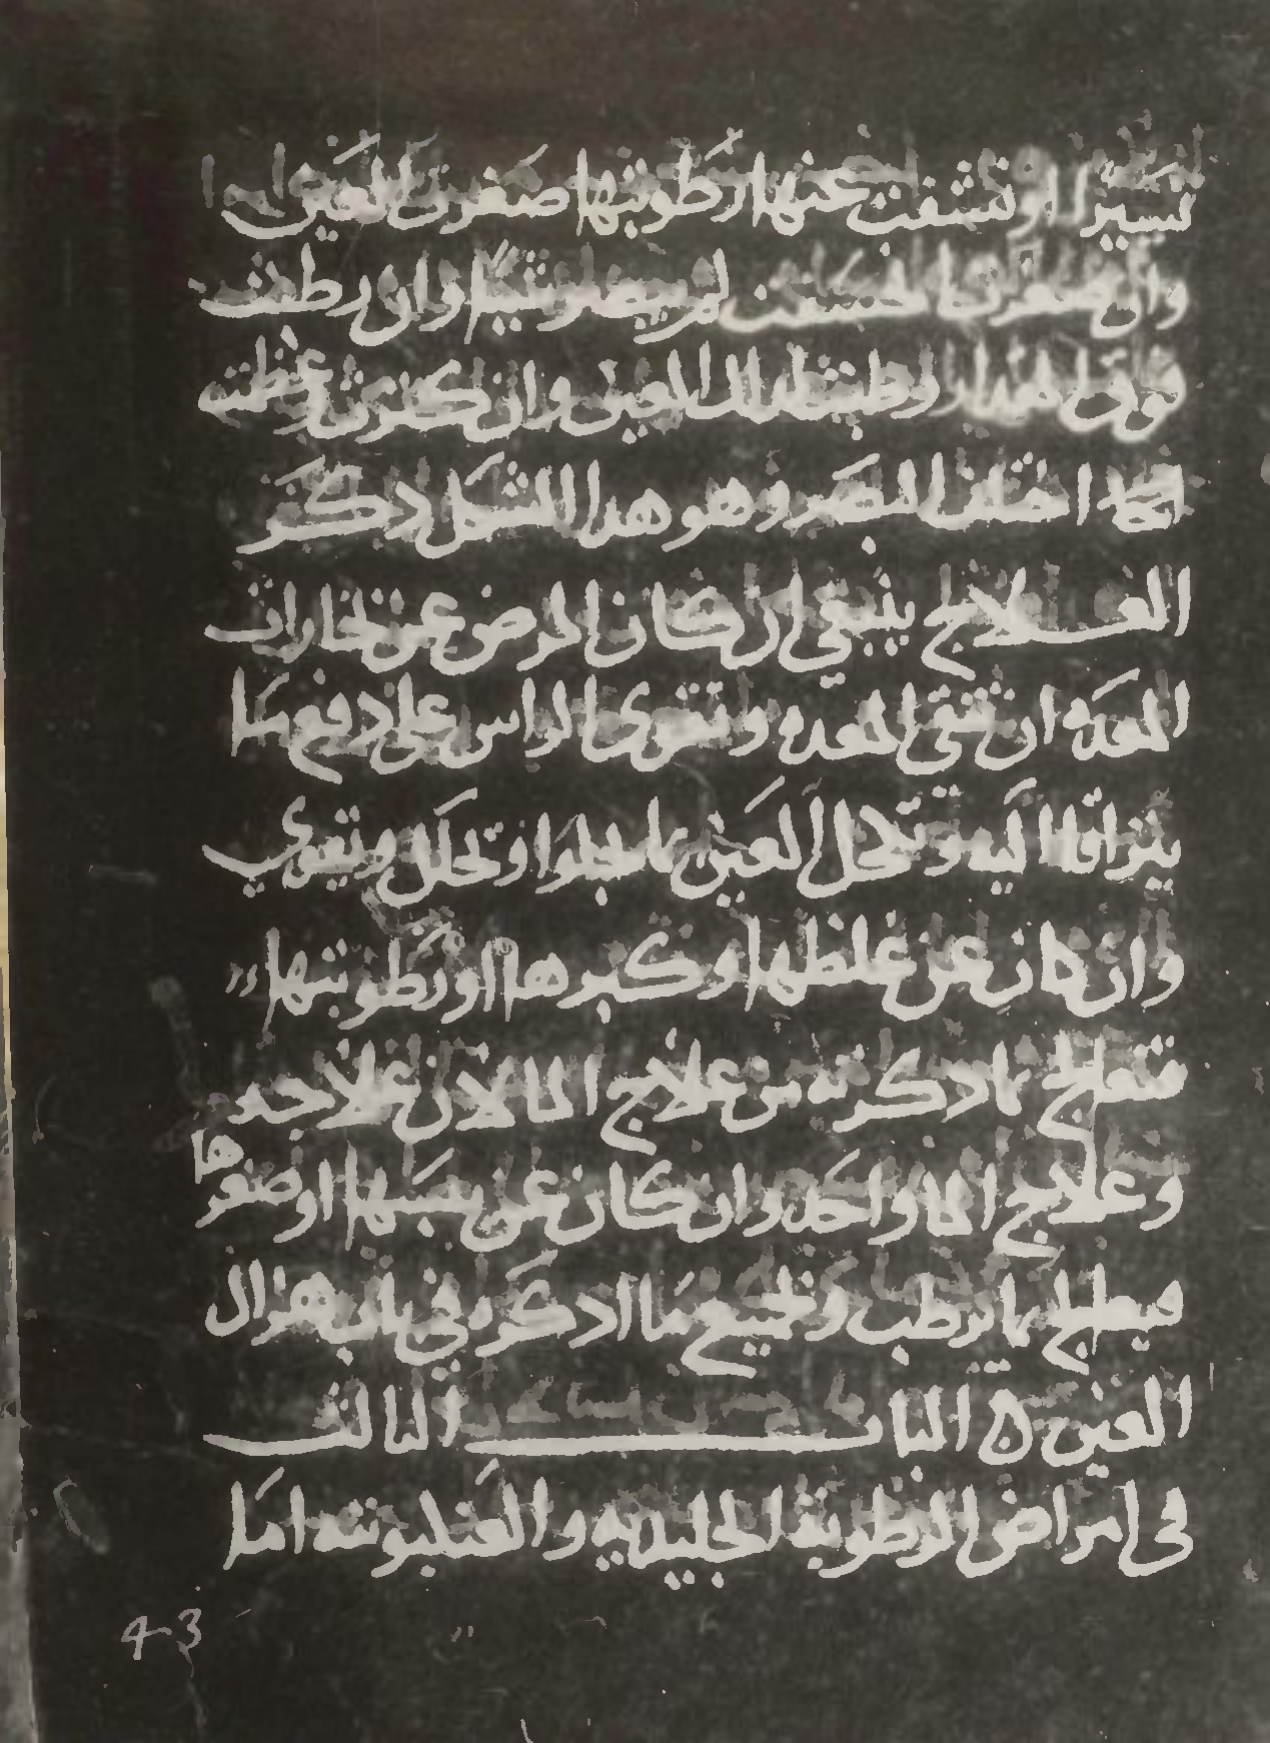 يسيرا او نشفت عنها رطوبتها صغرت العين
وان صغرت لم يبصر شيا وان رطبت
وان كبرت وغلظت
اختلف البصر وهو هدا الشكل دكر
العلاج ينبغي ان كان المرض عن بخارات
المعده ان تنقي المعده وتقوي الراس علي دفع ما
يتراقا اليه وتكحل العين بما يجلوا وتحلل ويقوي
وان كان عن غلظها وكبرها او رطوبتها
فتعالج بما دكرته من علاج الما لان علاجه
وعلاج الما واحد وان كان عن يبسها او صغرها
فيعالج بما يرطب وبجميع ما ادكره في باب هزال
العين ه الباب الثالث
في امراض الرطوبة الجليديه والعنكبوتيه اما
43